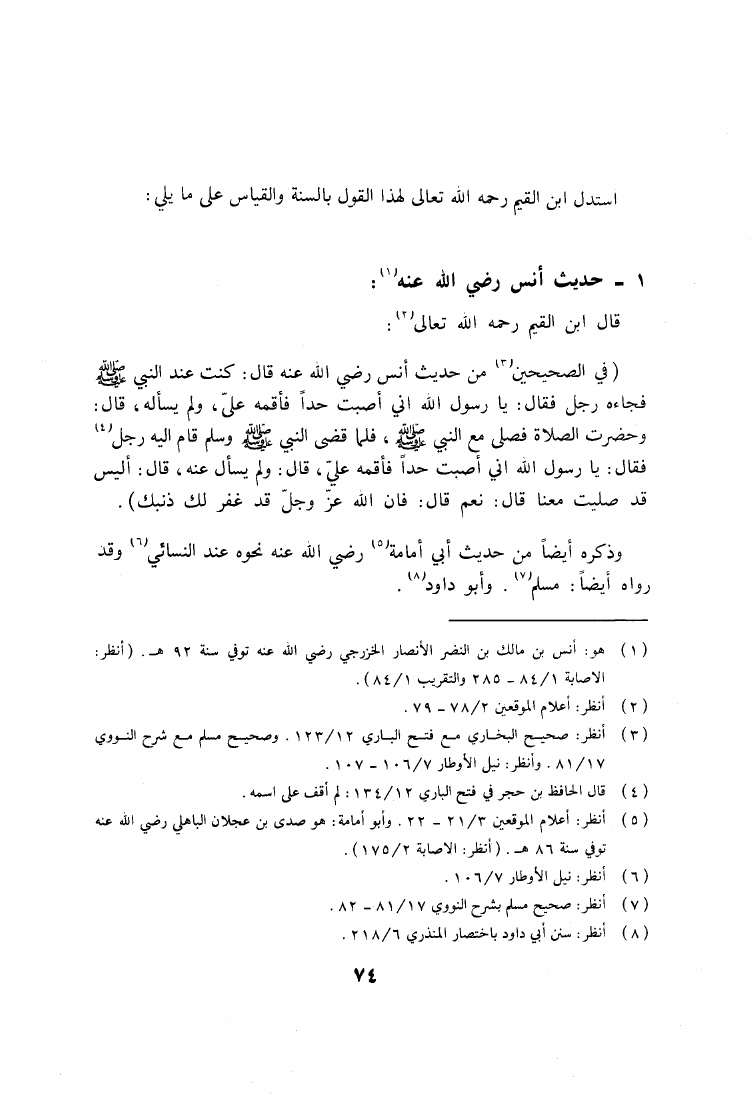 استدل ابن القيم رحمه الله تعالى لهذا القول بالسنة والقياس على ما يلي :
١ - حديث أنس رضي الله عنه(١) :
قال ابن القيم رحمه الله تعالى(٢) :
( في الصحيحين(٣) من حديث أنس رضي الله عنه قال : كنت عند النبي ﷺ
فجاءه رجل فقال : يا رسول الله اني أصبت حداً فأقمه عليّ، ولم يسأله ، قال :
وحضرت الصلاة فصلى مع النبي ﷺ ، فلما قضى النبي ﷺ وسلم قام اليه رجل(٤)
فقال : يا رسول الله اني أصبت حداً فأقمه عليّ ، قال : ولم يسأل عنه ، قال : أليس
قد صليت معنا قال : نعم قال : فان الله عزّ وجلّ قد غفر لك ذنبك ) .
وذكره أيضاً من حديث أبي أمامة(٥) رضي الله عنه نحوه عند النسائي(٦) وقد
رواه أيضاً : مسلم(٧) . وأبو داود(٨) .
( ١ ) هو : أنس بن مالك بن النضر الأنصار الخزرجي رضي الله عنه توفي سنة ٩٢ هـ . ( أنظر :
الاصابة ٨٤/١ - ٢٨٥ والتقريب ٨٤/١ ) .
( ٢ ) أنظر : أعلام الموقعين ٧٨/٢ - ٧٩ .
( ٣ ) أنظر : صحيح البخاري مع فتح الباري ١٢٣/١٢ . وصحيح مسلم مع شرح النووي
٨١/١٧ . وأنظر : نيل الأوطار ١٠٦/٧ - ١٠٧ .
( ٤ ) قال الحافظ بن حجر في فتح الباري ١٣٤/١٢ : لم أقف على اسمه .
( ٥ ) أنظر : أعلام الموقعين ٢١/٣ - ٢٢ . وأبو أمامة : هو صدى بن عجلان الباهلي رضي الله عنه
توفي سنة ٨٦ هـ . ( أنظر : الاصابة ١٧٥/٢ ) .
( ٦ ) أنظر : نيل الأوطار ١٠٦/٧ .
( ٧ ) أنظر : صحيح مسلم بشرح النووي ٨١/١٧ - ٨٢ .
( ٨ ) أنظر : سنن أبي داود باختصار المنذري ٢١٨/٦ .
٧٤